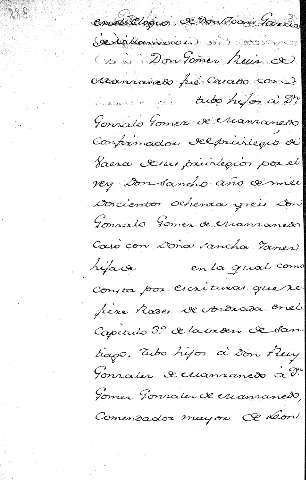 en el Elogio de Don Juan Garcia
de Villamaior
Don Gomez Ruiz de
Manzanedo fué Casado con
tubo hijos á Dn
Gonzalo Gomez de Manzanedo
Confirmador del privilegio de
Baeza de sus privilegios por el
rey Don Sancho año de mill
Docientos ochenta y seis Don
Gonzalo Gomez de Manzanedo
Casó con Doña Sancha Yanez
hija de en la qual como
consta por escrituras que re
fiere Rades de Andrada en el
Capitulo 3º de la orden de San
tiago, tubo hijos á Don Ruy
Gonzalez de Manzanedo á Dn
Gomez Gonzalez de Manzanedo,
Comendador mayor de Leon